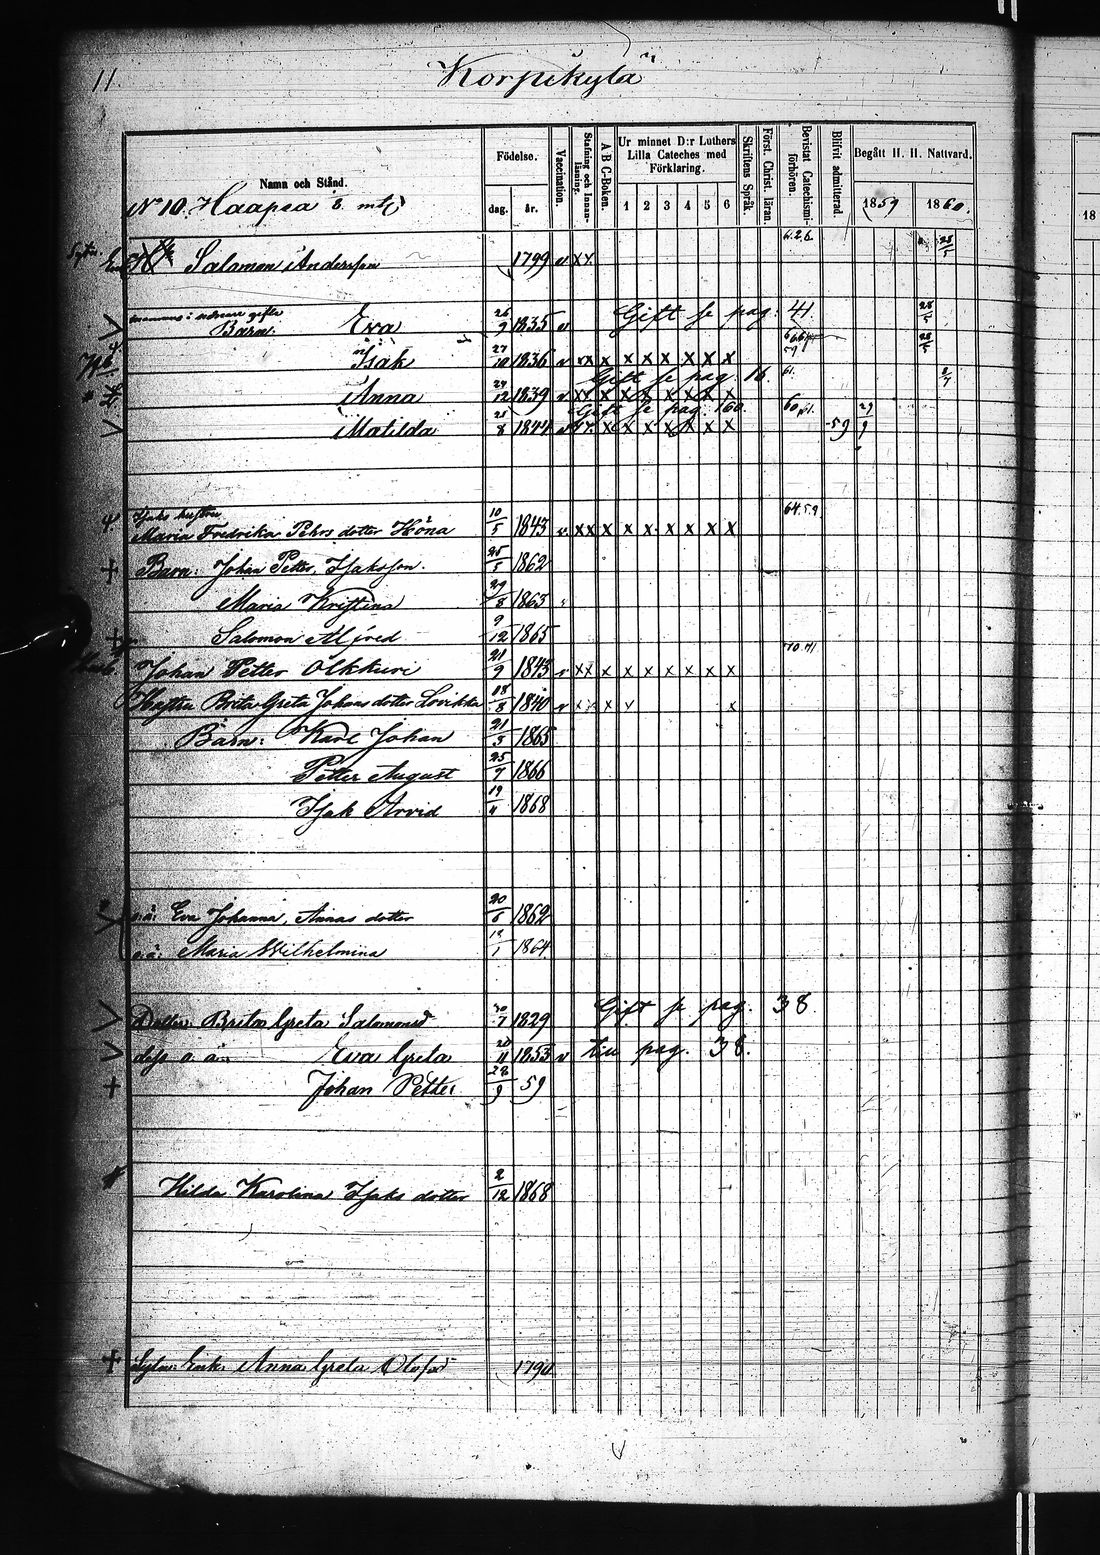 11.
Korpikylä
Namn och Stånd.
Födelse.
dag.
år.
Vaccination.
Stafning och Innanläsning.
A B C-Boken.
Ur minnet D:r Luthers Lilla Cateches med Förklaring.
1 2 3 4 5 6
Skriftens Språk.
Först. Christ. läran.
Bevistat Catechismiförhören.
Blifvit admitterad.
Begått H. H. Nattvard.
1859 1860.
18
No 10. Haapsa
Salomon Andersson 1799 v xx
Barn: Eva 26/9 1835 v Gift se pag: 41 28/5
Isak 27/10 1836 v xx x x x x x x x 28/5
Gift se pag. 16. 61.
Anna 24/12 1839 v xx x x x x x x x 2/7
Gift se pag. 160
Matilda 25/8 1844 x x x x x x x 59 29/9
Isaks hustru 64.59
Maria Fredrika Pehrs dotter Höna 10/5 1843 v xx x x x x x x x
+ Barn: Johan Petter Isaksson. 25/5 1862
Maria Kristina 29/8 1863
+ Salomon Alfred 9/12 1865
Johan Petter Olkkuri 21/9 1843 v xx x x x x x x x
Hustru Brita Greta Johans dotter Lovikka 18/8 1840 v xx x x x
Barn: Karl Johan 21/3 1865
Petter August 25/7 1866
Isak Arvid 19/4 1868
o.ä: Eva Johanna, Annas dotter 20/6 1862
o.ä: Maria Wilhelmina 1864
Dotter: Brita Greta Salomonsd 1829 Gift se pag. 38
dess o. ä: Eva Greta 20/11 1853 v till pag. 38.
+ Johan Petter 28/9 59
Hilda Karolina Isaks dotter 2/12 1868
+ Enk. Anna Greta Olofsd 1790